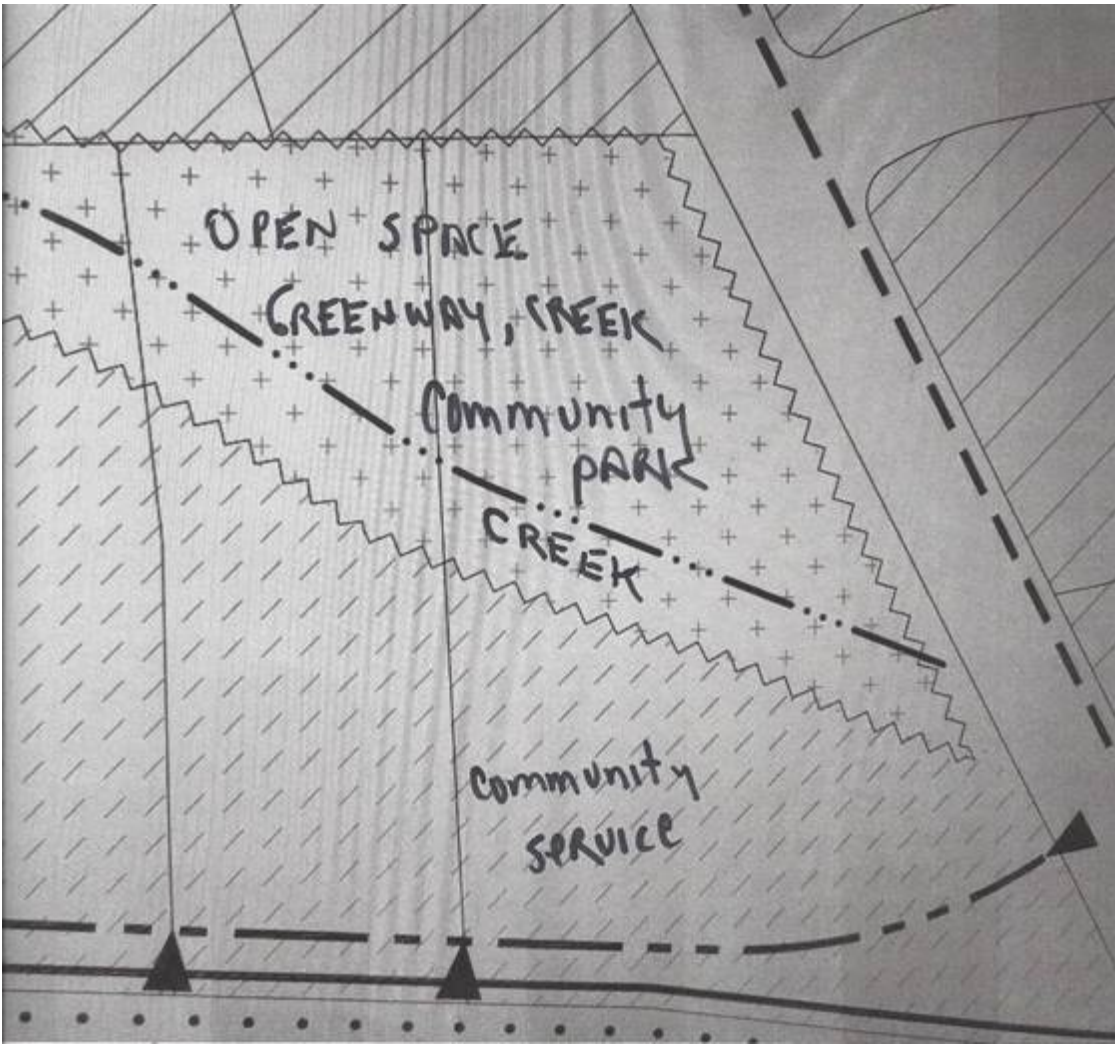 OPEN SPACE
GREENWAY, CREEK
Community
PARK
CREEK
Community
SERVICE